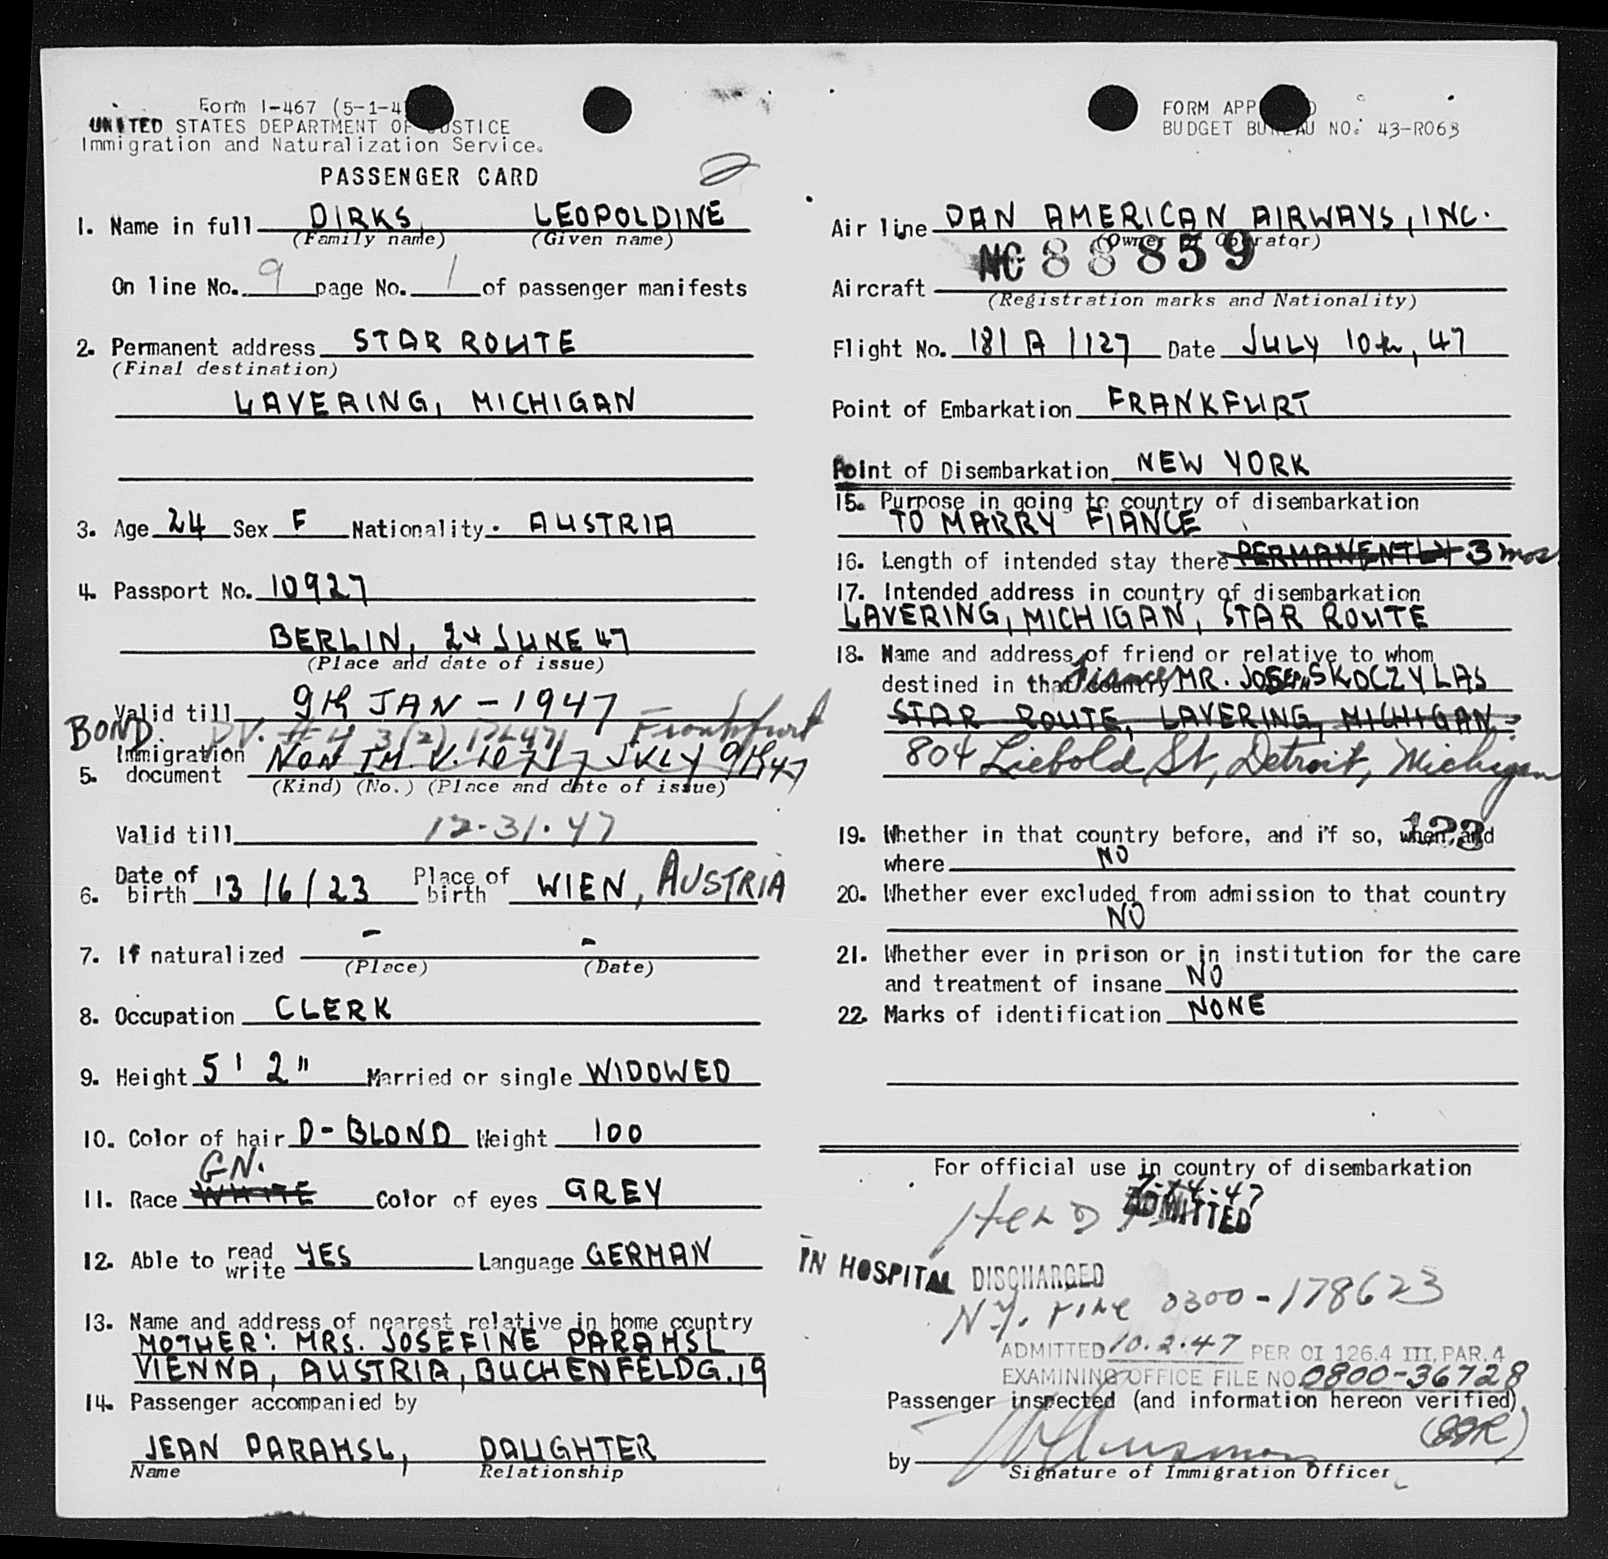 Form I-467 (5-1-4
UNITED STATES DEPARTMENT OF JUSTICE
Immigration and Naturalization Service.
PASSENGER CARD
2
1. Name in full DIRKS, LEOPOLDINE
(Family name) (Given name)
On line No. 9 page No. 1 of passenger manifests
2. Permanent address STAR ROUTE
(Final destination)
LAVERING, MICHIGAN
3. Age 24 Sex F Nationality. AUSTRIA
4. Passport No. 10927
BERLIN, 24 JUNE 47
(Place and date of issue)
Valid till 9th JAN - 1947
BOND. DV. #4 3(2) PL471 Frankfurt
5. Immigration document NON IM. V. 10717 JULY 9th 47
(Kind) (No.) (Place and date of issue)
Valid till 12-31-47
6. Date of birth 13/6/23 Place of birth WIEN, AUSTRIA
7. If naturalized - -
(Place) (Date)
8. Occupation CLERK
9. Height 5' 2" Married or single WIDOWED
10. Color of hair D-BLOND Weight 100
GN.
11. Race WHITE Color of eyes GREY
12. Able to read write YES Language GERMAN
13. Name and address of nearest relative in home country
MOTHER: MRS. JOSEFINE PARAHSL
VIENNA, AUSTRIA, BUCHENFELDG. 19
14. Passenger accompanied by
JEAN PARAHSL, DAUGHTER
Name Relationship
FORM APPROVED
BUDGET BUREAU NO. 43-R063
Air line PAN AMERICAN AIRWAYS, INC.
(Owner or Operator)
Aircraft NC 88859
(Registration marks and Nationality)
Flight No. 181 A / 127 Date JULY 10th, 47
Point of Embarkation FRANKFURT
Point of Disembarkation NEW YORK
15. Purpose in going to country of disembarkation
TO MARRY FIANCE
16. Length of intended stay there PERMANENTLY 3 mos.
17. Intended address in country of disembarkation
LAVERING, MICHIGAN, STAR ROUTE
18. Name and address of friend or relative to whom
destined in that country Fiance MR. JOSEPH SKOCZYLAS
STAR ROUTE, LAVERING, MICHIGAN.
804 Liebold St, Detroit, Michigan
19. Whether in that country before, and if so, when, and
123
where NO
20. Whether ever excluded from admission to that country
NO
21. Whether ever in prison or in institution for the care
and treatment of insane NO
22. Marks of identification NONE
For official use in country of disembarkation
7-14-47
HELD ADMITTED
IN HOSPITAL DISCHARGED
N.Y. File 0300-178623
ADMITTED 10.2.47 PER OI 126.4 III. PAR. 4
EXAMINING OFFICE FILE NO. 0800-36728
Passenger inspected (and information hereon verified)
by
Signature of Immigration Officer